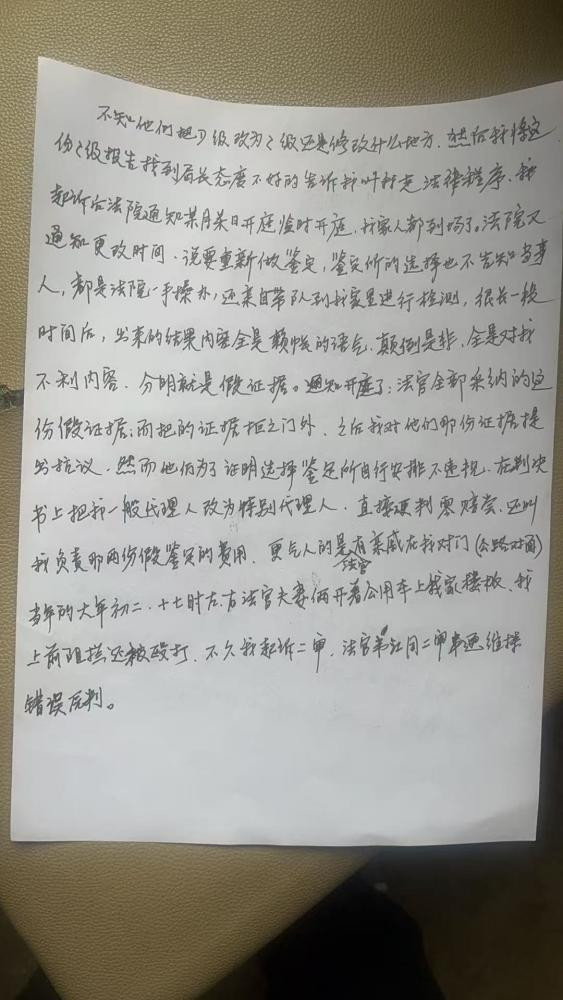 不知他们把D级改为C级还是修改什么地方，然后我将这
份C级报告找到局长态度不好的告诉我叫我走法律程序，我
起诉后法院通知某月某日开庭临时开庭，我家人都到场了。法院又
通知更改时间，说要重新做鉴定，鉴定所的选择也不告知当事
人，都是法院一手操办，还亲自带队到我家里进行检测，很长一段
时间后，出来的结果内容全是颠悖的语气，颠倒是非，全是对我
不利内容，分明就是假证据。通知开庭了：法官全部采纳的这
份假证据；而把的证据拒之门外，之后我对他们那份证据提
出抗议，然而他们为了证明选择鉴定所自行安排不违规，在判决
书上把我一般代理人改为特别代理人，直接硬判零赔偿，还叫
我负责那两份假鉴定的费用，更气人的是法官有亲戚在我对门(公路对面)
当年的大年初二，十七时左右法官夫妻俩开着公用车上我家楼板，我
上前阻拦还被殴打，不久我起诉二审，法官 同二审串通维持
错误反判。